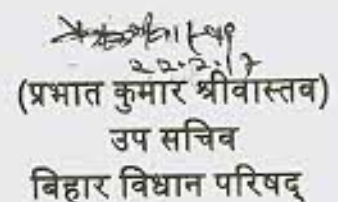 22.2.17
(प्रभात कुमार श्रीवास्तव)
उप सचिव
बिहार विधान परिषद्